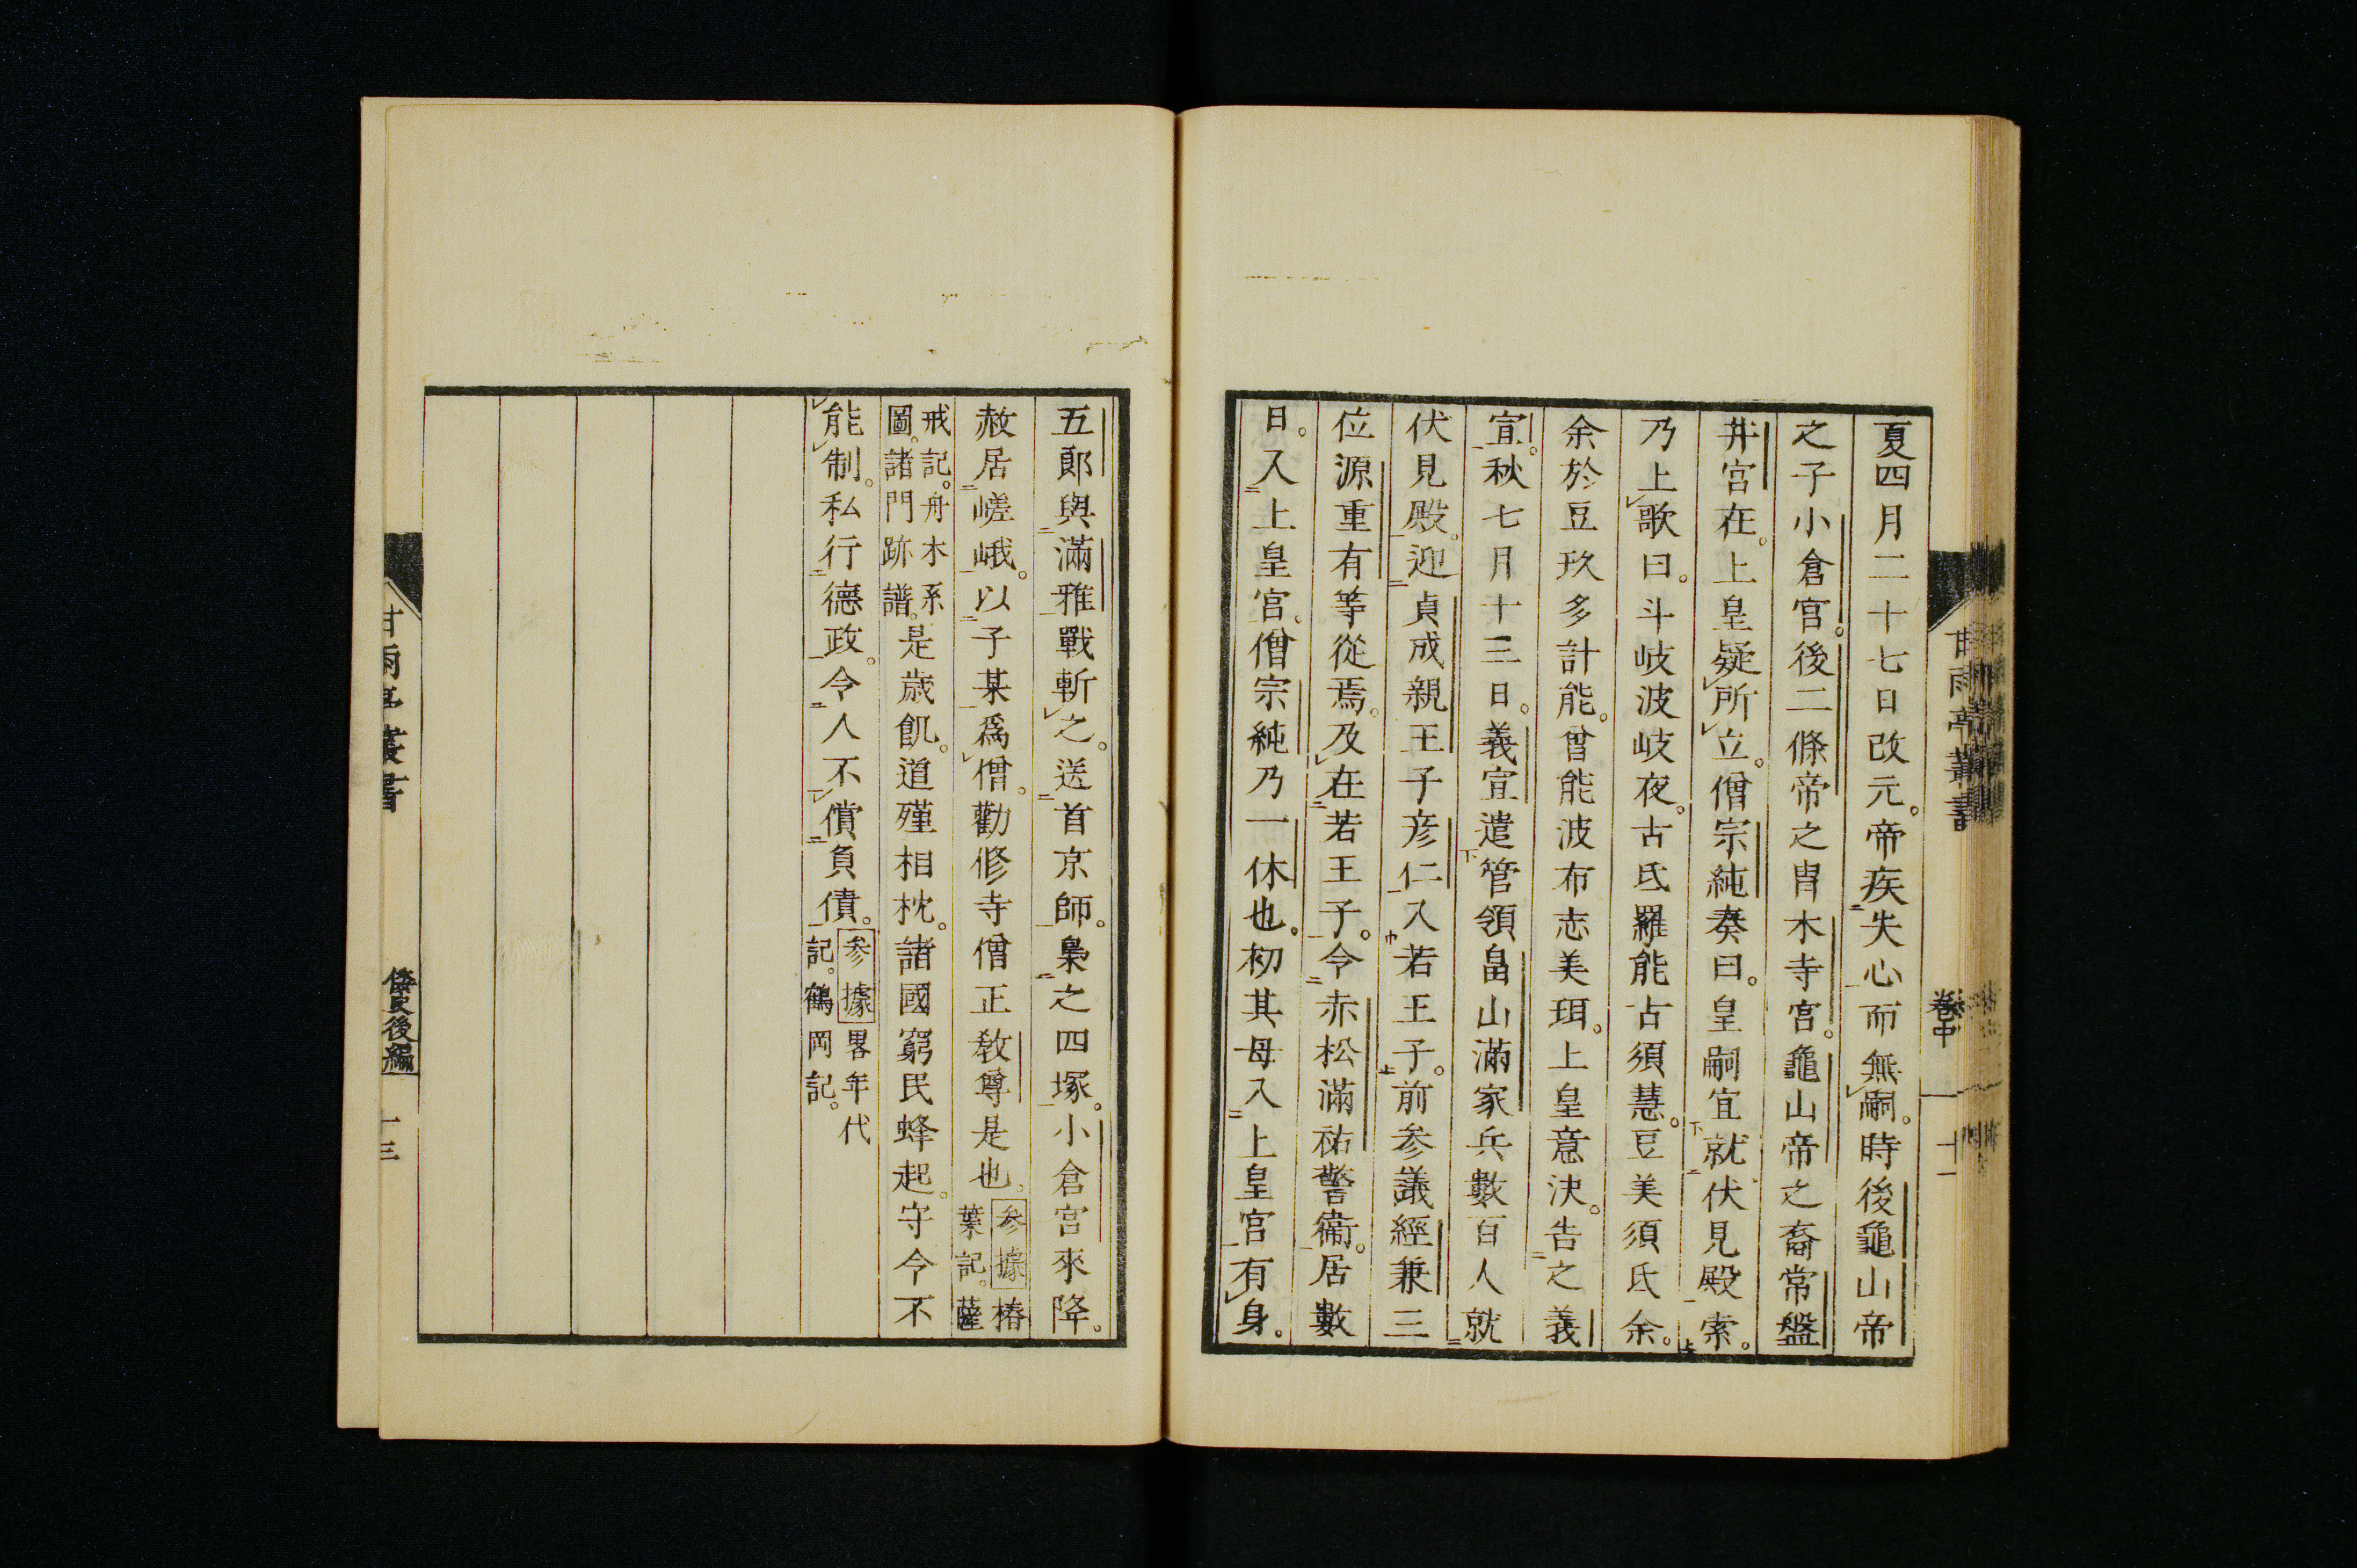 夏四月二十七日改元。帝疾失心而無嗣。時後龜山帝
之子小倉宮。後二條帝之冑木寺宮。龜山帝之裔常盤
井宮在。上皇疑所立。僧宗純奏曰。皇嗣宜就伏見殿索。
乃上歌曰。斗岐波岐夜。古氐羅能占須慧。豆美須氐余。
余於豆玖多計能。曾能波布志美珥。上皇意決。告之義
宣。秋七月十三日。義宣遣管領畠山滿家兵數百人就
伏見殿。迎貞成親王子彥仁入若王子。前参議經兼三
位源重有等從焉。及在若王子。令赤松滿祐警衞。居數
日。入上皇宮。僧宗純乃一休也。初其母入上皇宮有身。
甘雨亭叢書
卷中
十一
五郞與滿雅戰斬之。送首京師。梟之四塚。小倉宮來降。
赦居嵯峨。以子某爲僧。勸修寺僧正敎尊是也。参據椿
葉記。薩
戒記。舟木系
圖。諸門跡譜。是歳飢。道殣相枕。諸國窮民蜂起。守令不
能制。私行德政。令人不償負債。参據畧年代
記。鶴岡記。
甘雨亭叢書
倭史後編
十三